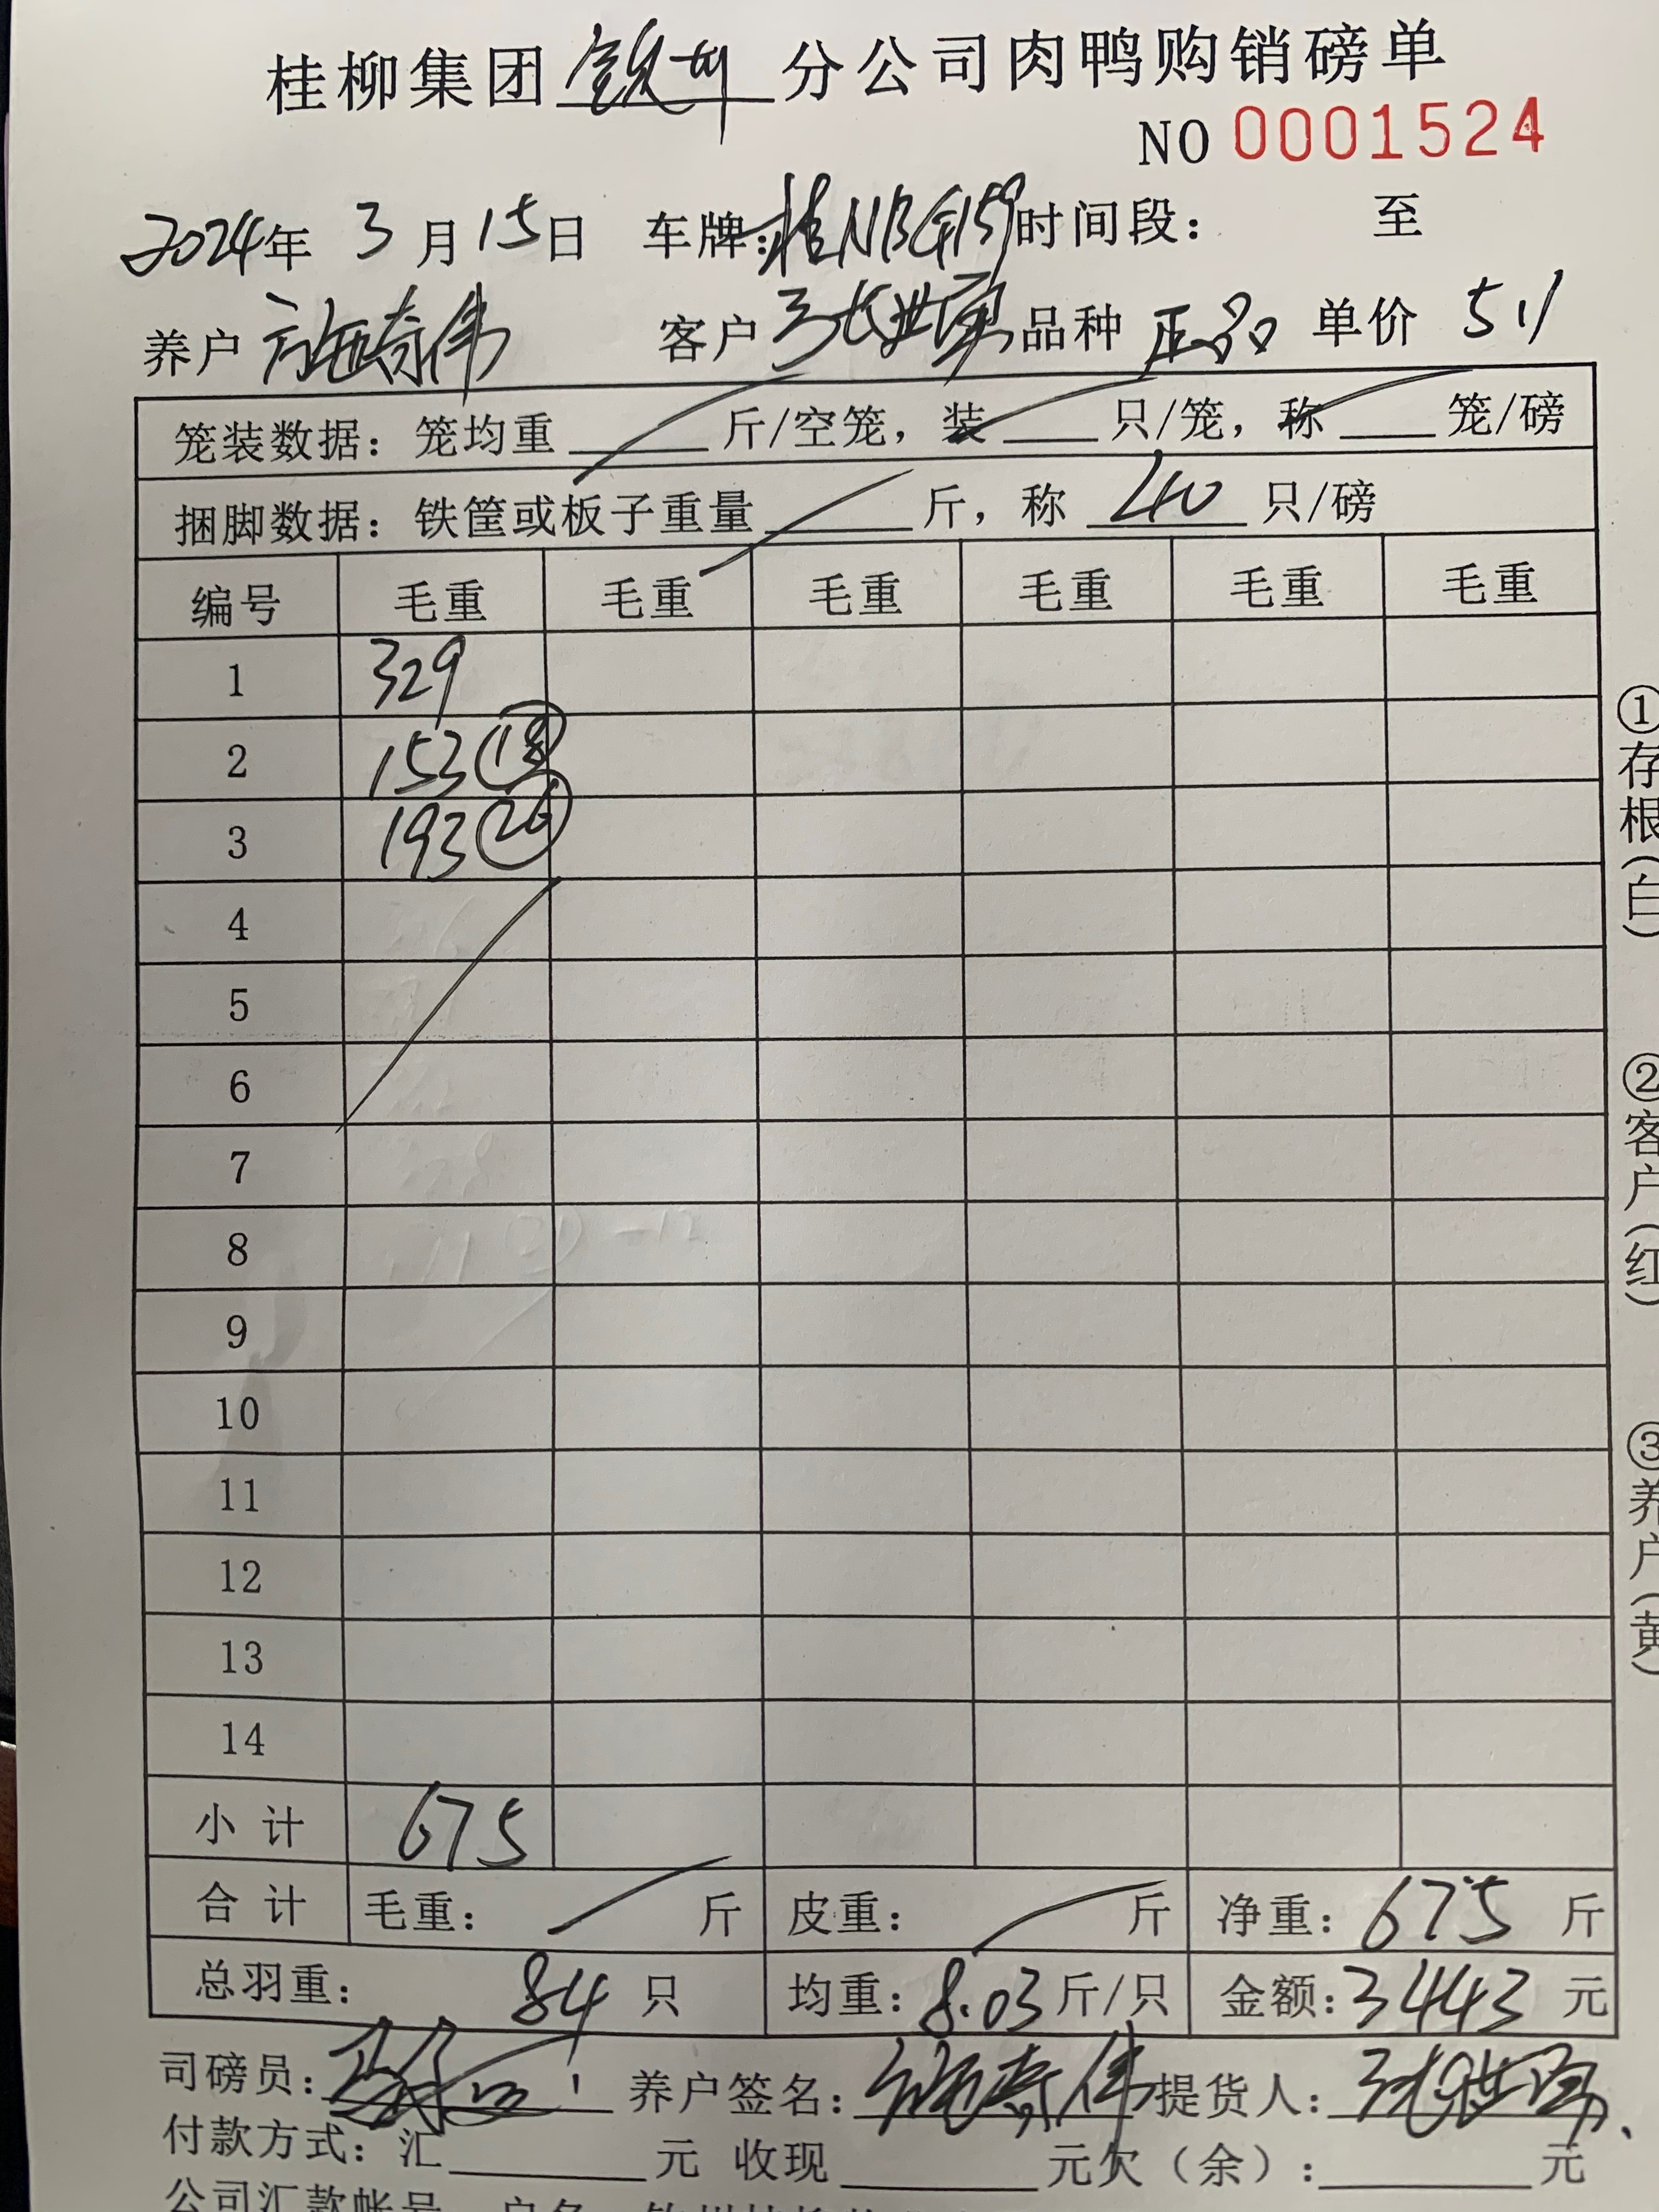 桂柳集团钦州分公司肉鸭购销磅单
NO 0001524
2024年 3月15日 车牌:桂NBG159 时间段: 至
养户 施奇伟 客户 品种 正品 单价 5.1
笼装数据: 笼均重____斤/空笼, 装____只/笼, 称____笼/磅
捆脚数据: 铁筐或板子重量____斤, 称 40 只/磅
编号 毛重 毛重 毛重 毛重 毛重 毛重
1 329
2 153 (18)
3 193 (26)
4
5
6
7
8
9
10
11
12
13
14
小计 675
合计 毛重: 斤 皮重: 斤 净重: 675 斤
总羽重: 84 只 均重: 8.03 斤/只 金额: 3443 元
司磅员: 养户签名: 施奇伟 提货人:
付款方式: 汇____元 收现____元欠(余):____元
公司汇款帐号 户名
①存根(白)
②客户(红)
③养户(黄)